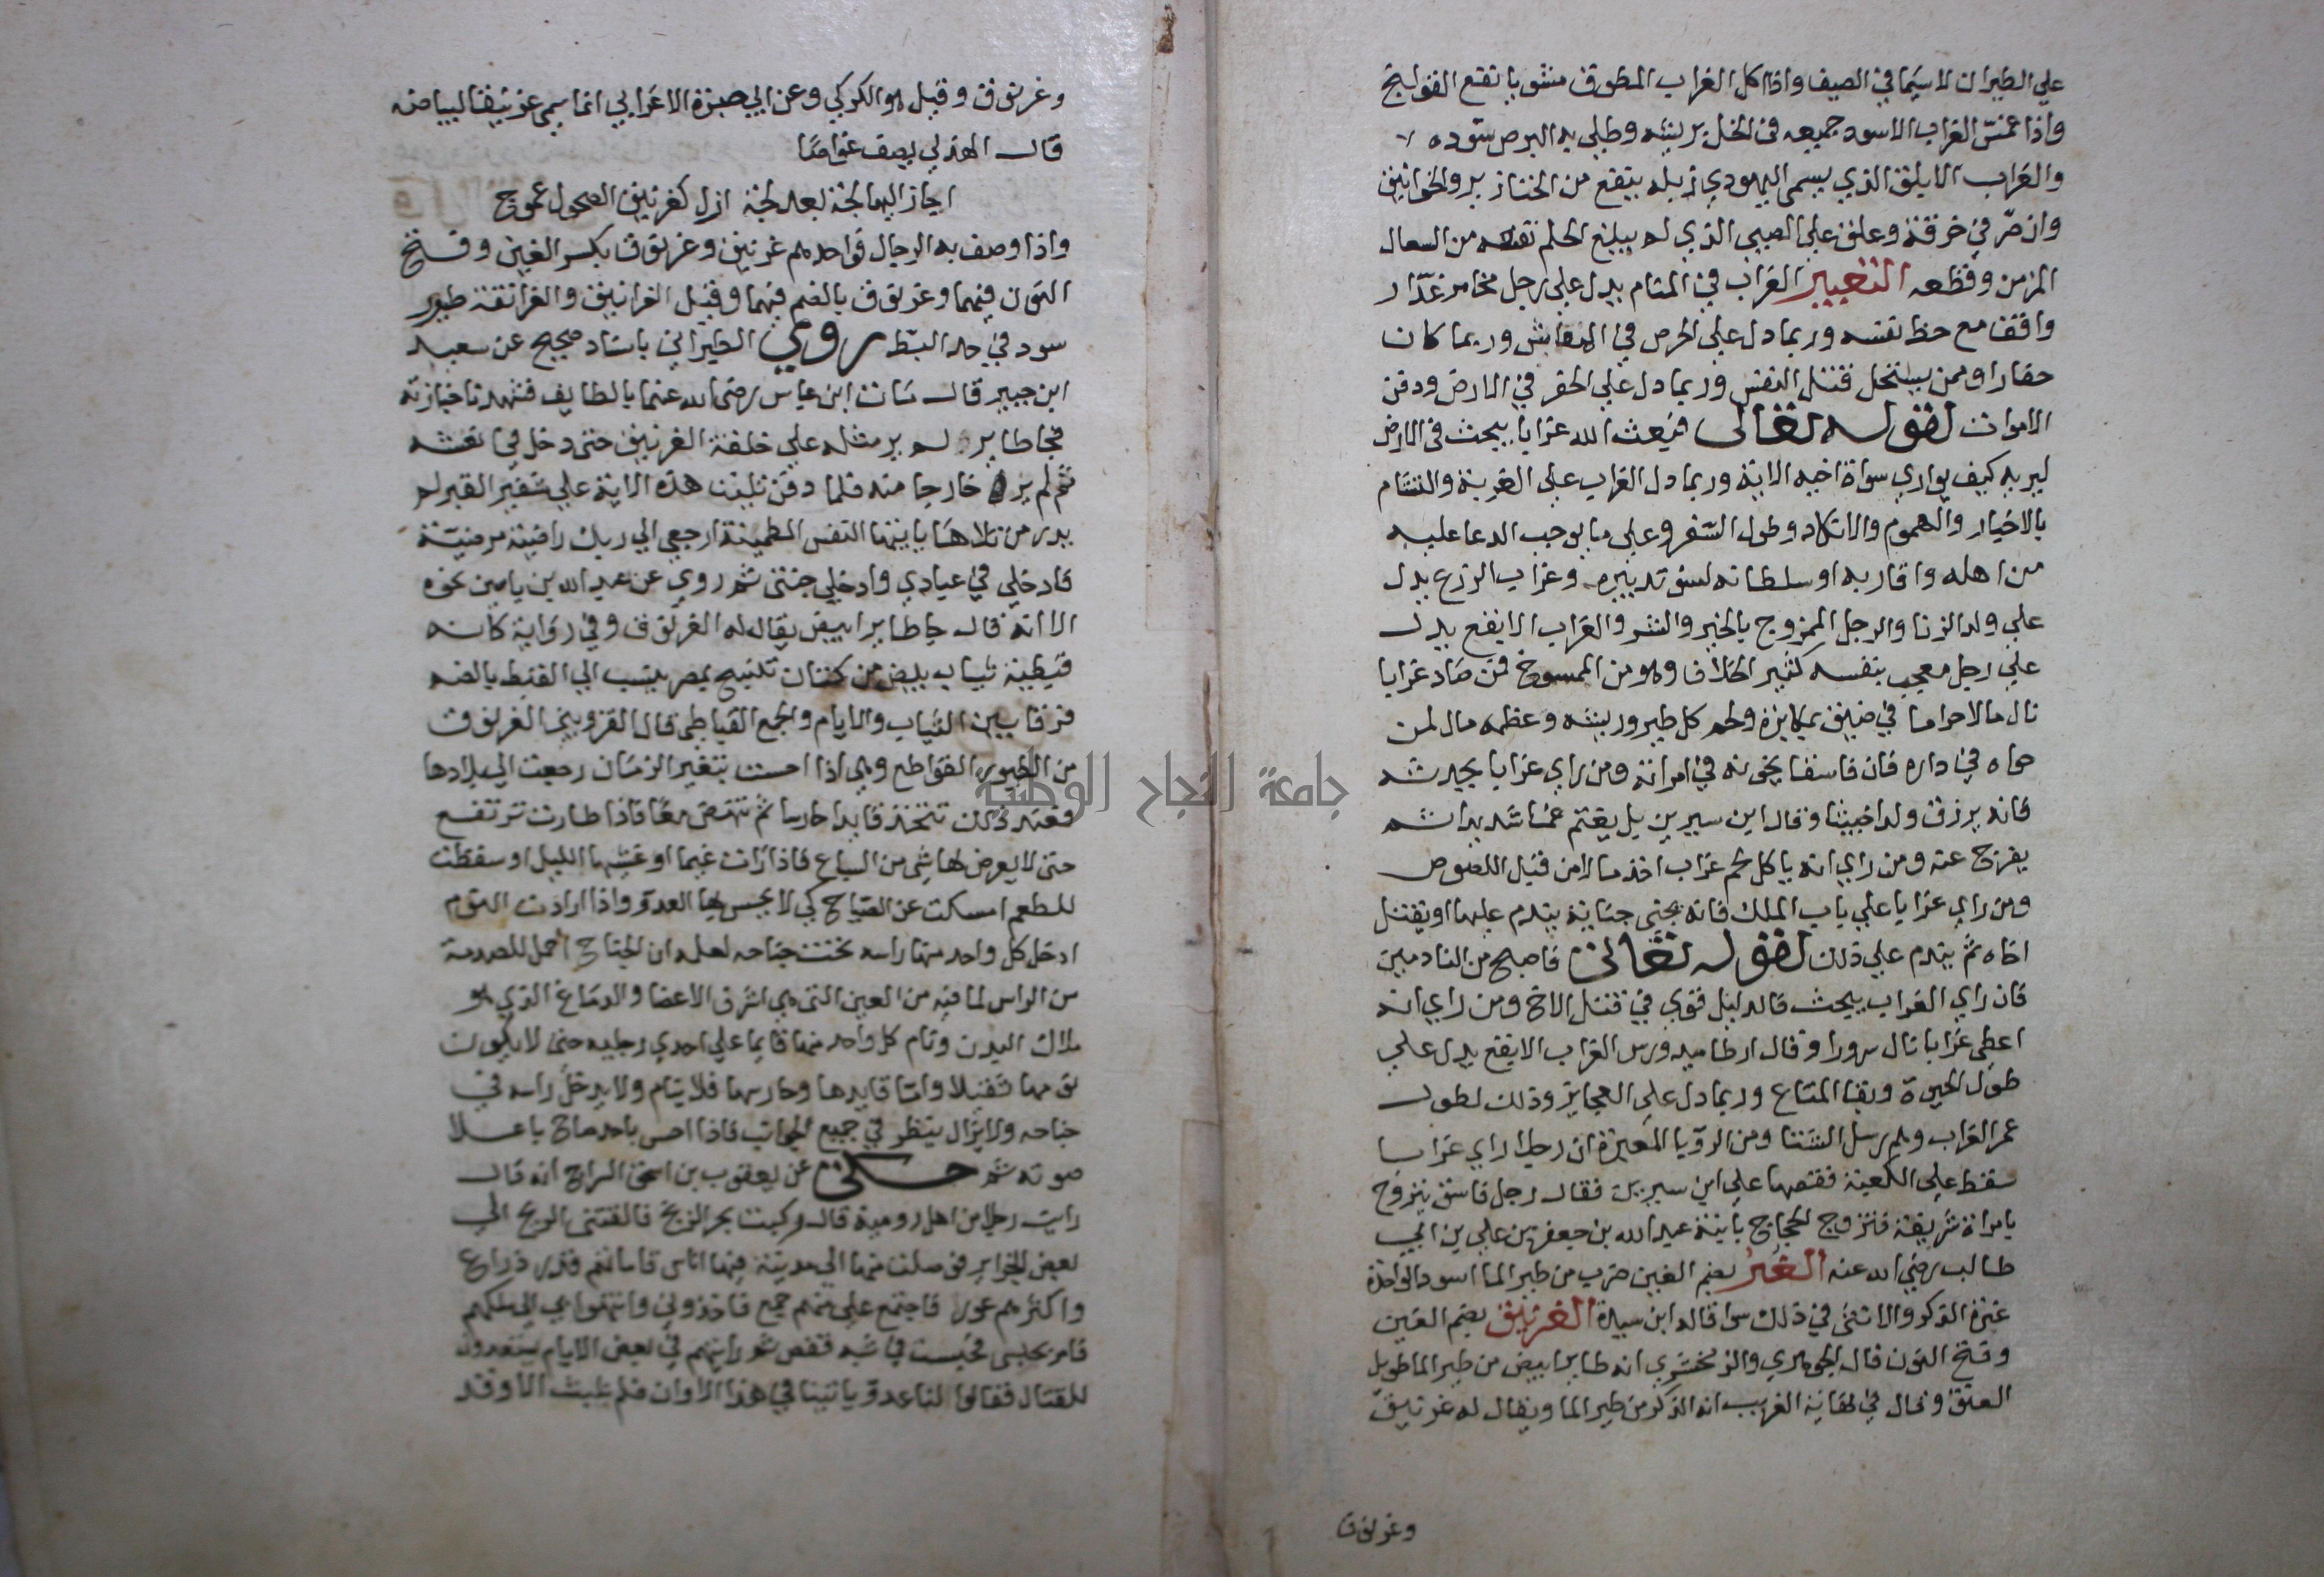 علي الطيران لا سيما في الصيف واذا اكل الغراب المطوق مشويا نفع القولنج
واذا غمس الغراب الاسود جميعه في الخل بريشه وطلي به البرص سوده
والغراب الابلق الذي يسمي اليهودي زبله ينفع من الخنازير والخوانيق
وان صر في خرقة وعلق علي الصبي الذي لم يبلغ الحلم نفعه من السعال
المزمن وقطعه التعبير الغراب في المنام يدل علي رجل مخامر غدار
واقف مع حظ نفسه وربما دل علي الحرص في المعايش وربما كان
حفارا وممن يستحل قتل النفس وربما دل علي الحفر في الارض ودفن
الاموات لقوله تعالى فبعث الله غرابا يبحث في الارض
ليريه كيف يواري سواة اخيه الاية وربما دل الغراب علي الغربة والتشام
بالاخبار والهموم والانكاد وطول السفر وعلي ما يوجب الدعا عليه
من اهله واقاربه او سلطانه لسو تدبيره وغراب الزرع يدل
علي ولد الزنا والرجل الممزوج بالخير والشر والغراب الابقع يدل
علي رجل معجب بنفسه كثير الخلاف وهو من المسوخ فمن صاد غرابا
نال مالا حراما في ضيق بمكابرة ولحم كل طير وريشه وعظمه مال لمن
حواه في داره فان فاسقا يخونه في امراته ومن راي غرابا يحدثه
فانه يرزق ولدا خبيثا وقال ابن سيرين بل يغتم غما شديدا ثم
يفرج عنه ومن راي انه ياكل لحم غراب اخذ مالا من قبل اللصوص
ومن راي غرابا علي باب الملك فانه يجني جناية يندم عليها او يقتل
اخاه ثم يندم علي ذلك لقوله تعالى فاصبح من النادمين
فان راي الغراب يبحث فالدليل قوي في قتل الاخ ومن راي انه
اعطي غرابا نال سرورا وقال ارطاميدورس الغراب الابقع يدل علي
طول الحيوة وبقا المتاع وربما دل علي العجايز وذلك لطول
عمر الغراب وهم رسل الشتا ومن الرويا المعبرة ان رجلا راي غرابا
سقط علي الكعبة فقصها علي ابن سيرين فقال رجل فاسق يتزوج
بامراة شريفة فتزوج الحجاج بابنة عبد الله بن جعفر بن علي بن ابي
طالب رضي الله عنه الغُر بضم الغين ضرب من طير الما اسود الواحدة
غرة الذكر والانثي في ذلك سوا قاله ابن سيدة الغرنيق بضم الغين
وفتح النون قال الجوهري والزمخشري انه طاير ابيض من طير الما طويل
العنق وقال في نهاية الغريب انه الذكر من طير الما ويقال له غرنيق
وغرنوق
وغرنوق وقيل هو الكركي وعن ابي صبرة الاعرابي انما سمي غرنيقا لبياضه
قال الهذلي يصف غواصا
اجاز اليها لجة بعد لجة ازل كغرنيق الضحول عموج
واذا وصف به الرجال فواحدهم غرنيق وغرنوق بكسر الغين وفتح
النون فيهما وغرنوق بالضم فيهما وقيل الغرانيق والغرانقة طيور
سود في حد البط روي الطبراني باسناد صحيح عن سعيد
ابن جبير قال مات ابن عباس رضي الله عنهما بالطايف فشهدنا جنازته
فجا طاير لم ير مثله علي خلقة الغرنيق حتي دخل في نعشه
ثم لم ير خارجا منه فلما دفن تليت هذه الاية علي شفير القبر لم
يدر من تلاها يا ايتها النفس المطمينة ارجعي الي ربك راضية مرضية
فادخلي في عبادي وادخلي جنتي ثم روي عن عبد الله بن يامين نحوه
الا انه قال جا طاير ابيض يقال له الغرنوق وفي رواية كانه
قبطية ثياب بيض من كتان تنسج بمصر ينسب الي القبط بالضم
فرقا بين الثياب والانام والجمع القباطي قال القزويني الغرنوق
من الطيور القواطع وهي اذا احست بتغير الزمان رجعت الي بلادها
فعند ذلك تتخذ قايدا حارسا ثم تنهض معا فاذا طارت ترتفع
حتي لا يعرض لها شي من السباع فاذا رات غيما او غشيها الليل او سقطت
للطعم امسكت عن الصياح كي لا يحس بها العدو واذا ارادت النوم
ادخل كل واحد منها راسه تحت جناحه لعلمه ان الجناح احمل للصدمة
من الراس لما فيه من العين التي هي اشرف الاعضا والدماغ الذي هو
ملاك البدن وينام كل واحد منها قايما علي احدي رجليه حتي لا يكون
نومها ثقيلا واما قايدها وحارسها فلا ينام ولا يدخل راسه في
جناحه ولا يزال ينظر في جميع الجوانب فاذا احس باحد صاح باعلا
صوته ثم حكى عن يعقوب بن اسحق السراج انه قال
رايت رجلا من اهل رومية قال ركبت بحر الزنج فالقتني الريح الي
بعض الجزاير فوصلت منها الي مدينة فيها اناس قاماتهم قدر ذراع
واكثرهم عور فاجتمع علي منهم جمع فاخذوني وانتهوا بي الي ملكهم
فامر بحبسي فحبست في شبه قفص ثم رايتهم في بعض الايام يستعدون
للقتال فقالوا لنا عدو ياتينا في هذا الاوان فلم نلبث الا وقد
جامعة النجاح الوطنية